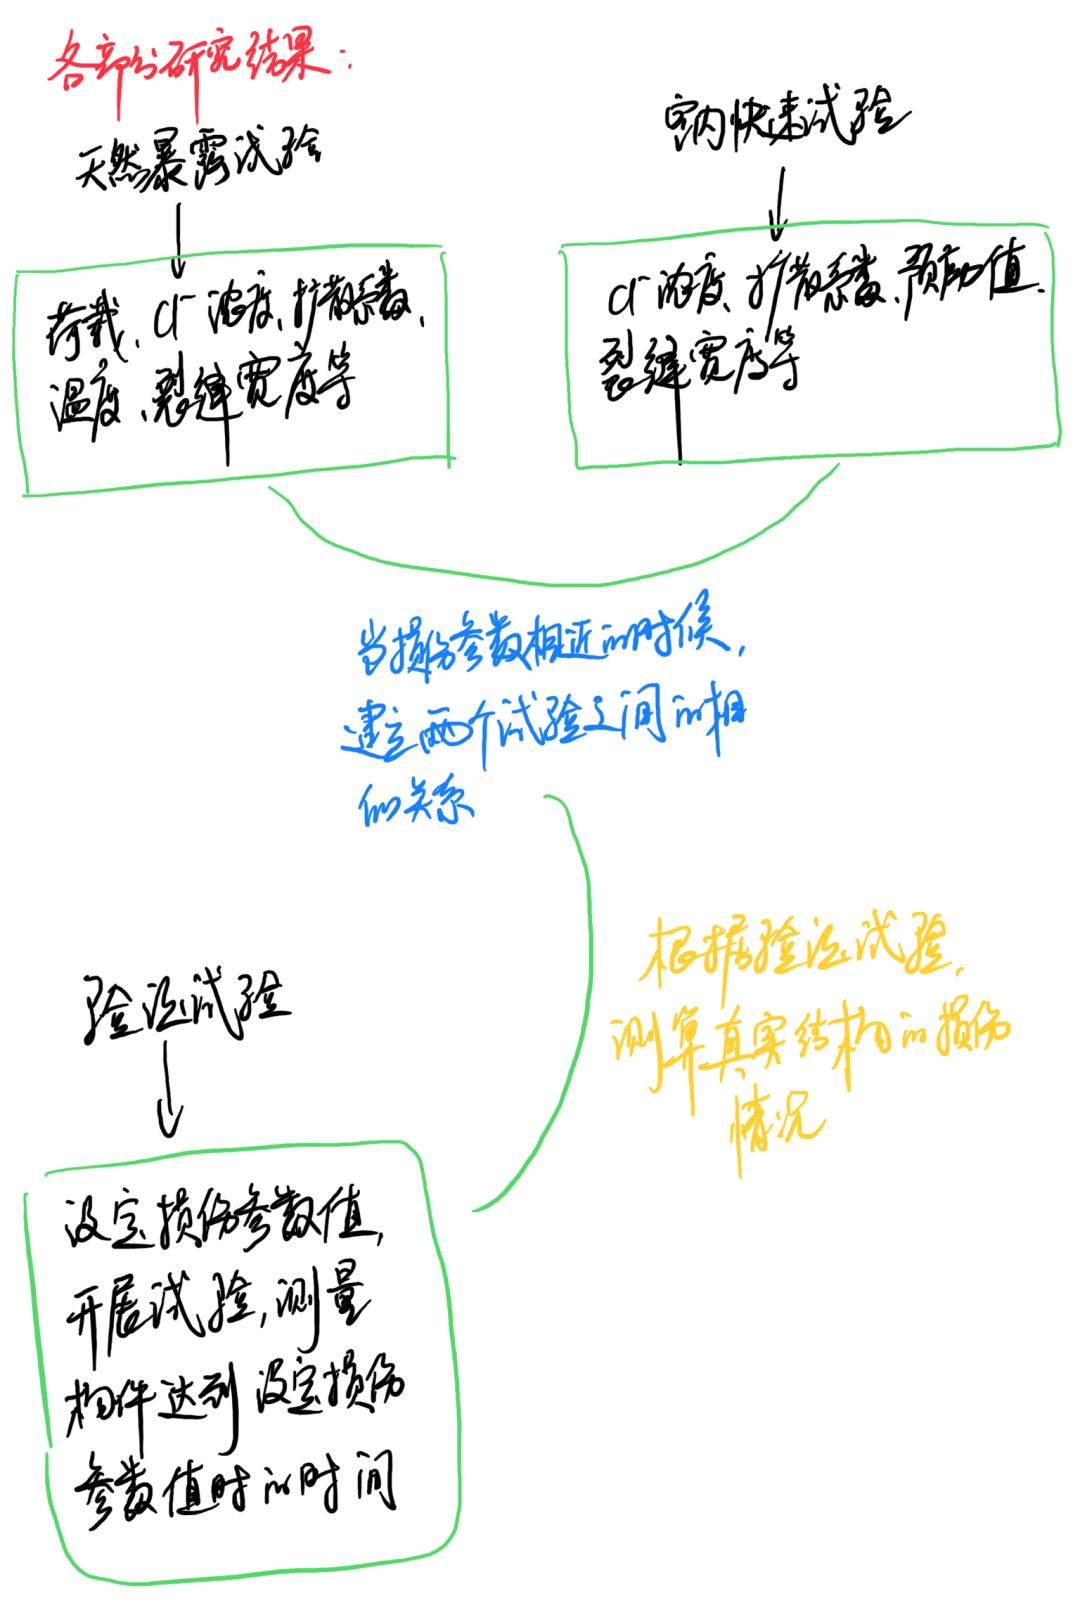 各部分研究结果：
天然暴露试验
荷载、Cl⁻浓度、扩散系数、
温度、裂缝宽度等
室内快速试验
Cl⁻浓度、扩散系数、预应力值、
裂缝宽度等
当损伤参数相近的时候，
建立两个试验之间的相
似关系
根据验证试验，
测算真实结构的损伤
情况
验证试验
设定损伤参数值，
开展试验，测量
构件达到设定损伤
参数值时的时间